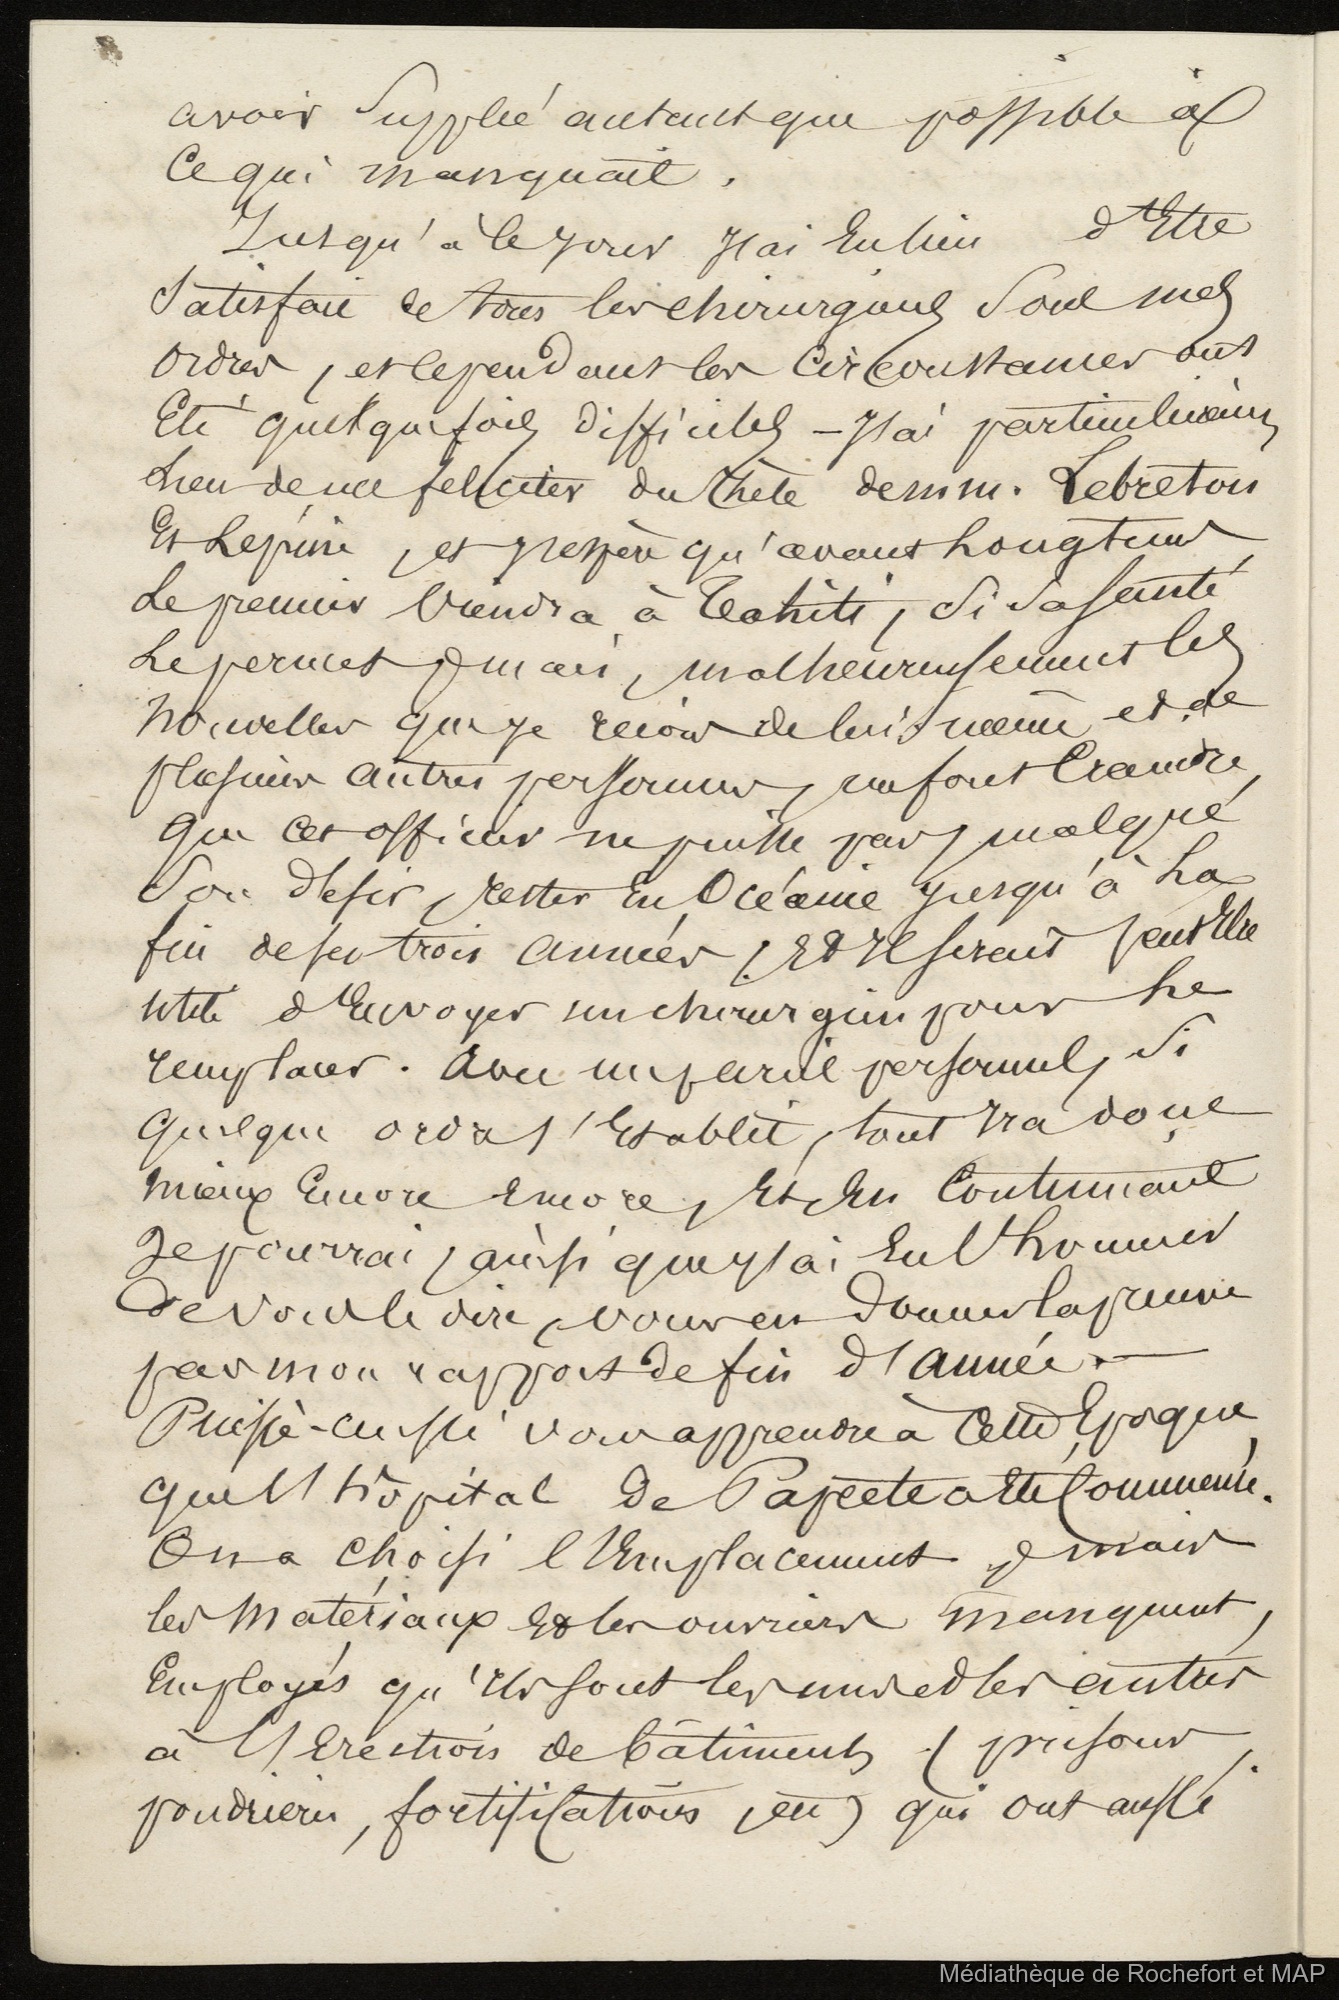 avoir supplée autant que possible à
ce qui manquait.
Jusqu'à ce jour j'ai eu lieu d'être
satisfait de tous les chirurgiens sous mes
ordres, et cependant les circonstances ont
été quelquefois difficiles - J'ai particulièremt
lieu de me feliciter du zhèle de mm. Lebreton
et Lépine, et j'espère qu'avant longtems
le premier viendra à Tahiti, si sa santé
le permet; mais, malheureusement les
nouvelles que je reçois de lui même et de
plusieurs autres personnes, me font craindre
que cet officier ne puisse pas, malgré
son desir, rester en Océanie jusqu'à la
fin de ses trois années, et il serait peut être
utile d'envoyer un chirurgien pour le
remplacer. Avec un pareil personnel, si
quelque ordre s'établit, tout ira donc
mieux encore encore, et, en continuant
je pourrai, ainsi que j'ai eu l'honneur
de vous le dire, vous en donner la preuve
par mon rapport de fin d'année. —
Puissè-aussi vous apprendre à cette époque
que l'hôpital de Papeete a été commencé.
On a choisi l'emplacement; mais
les matériaux et les ouvriers manquent,
employés qu'ils sont les uns et les autres
à l'érection de bâtiments (prisons,
poudrières, fortifications, etc) qui ont aussi
Médiathèque de Rochefort et MAP